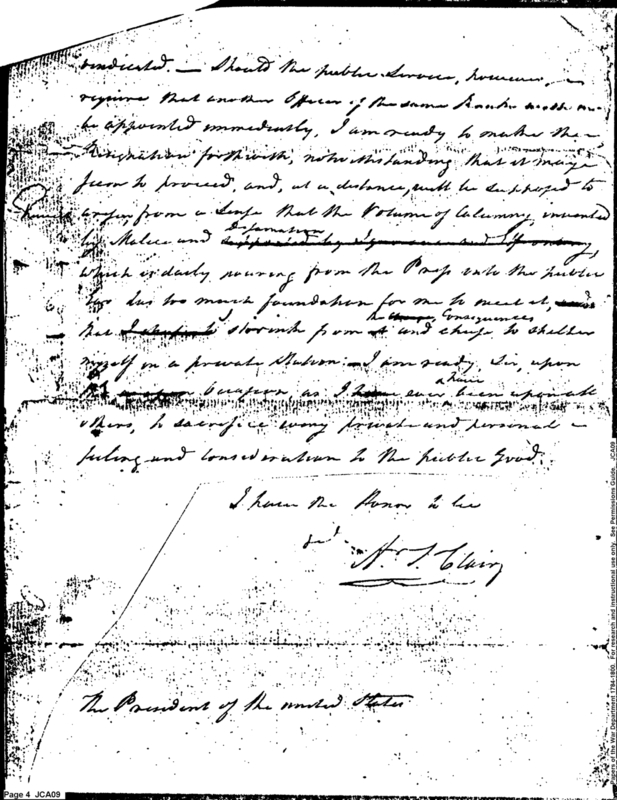 vindicated. — Should the public Service, however,
require that another Officer of the same Rank
be appointed immediately, I am ready to make the
Resignation forthwith, notwithstanding that it may
seem to proceed, and, at a distance, will be supposed to
arise, from a Sense that the Volume of Calumny, invented
by Malice and Defamation supported by Ignorance and
which is daily pouring from the Press into the public
has too much foundation for me to meet it, and
that I shrink from it the Consequences and chuse to shelter
myself in a private Station: — I am ready, Sir, upon
Occasion, as I have ever been upon all
others, to sacrifice every private and personal
feeling and consideration to the public Good.
I have the Honor to be
Ar. St. Clair
The President of the united States
Page 4 JCA09
Papers of the War Department 1784-1800. For research and instructional use only. See Permissions Guide. JCA09